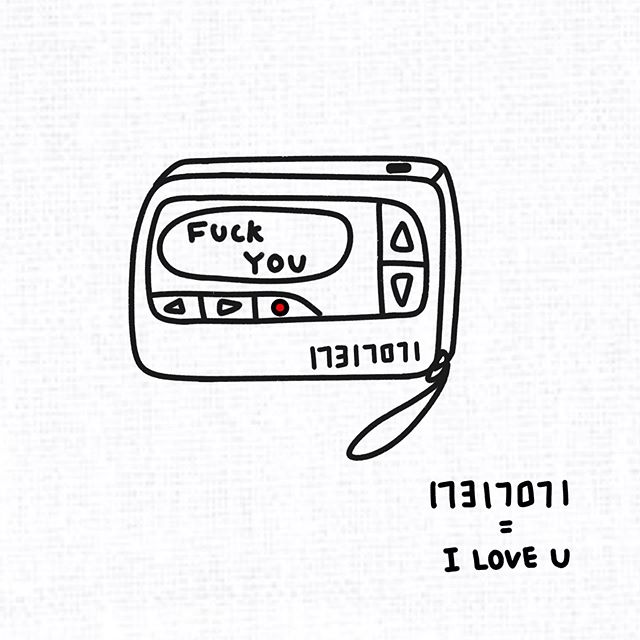 Fuck
You
17317071
17317071
=
I LOVE U